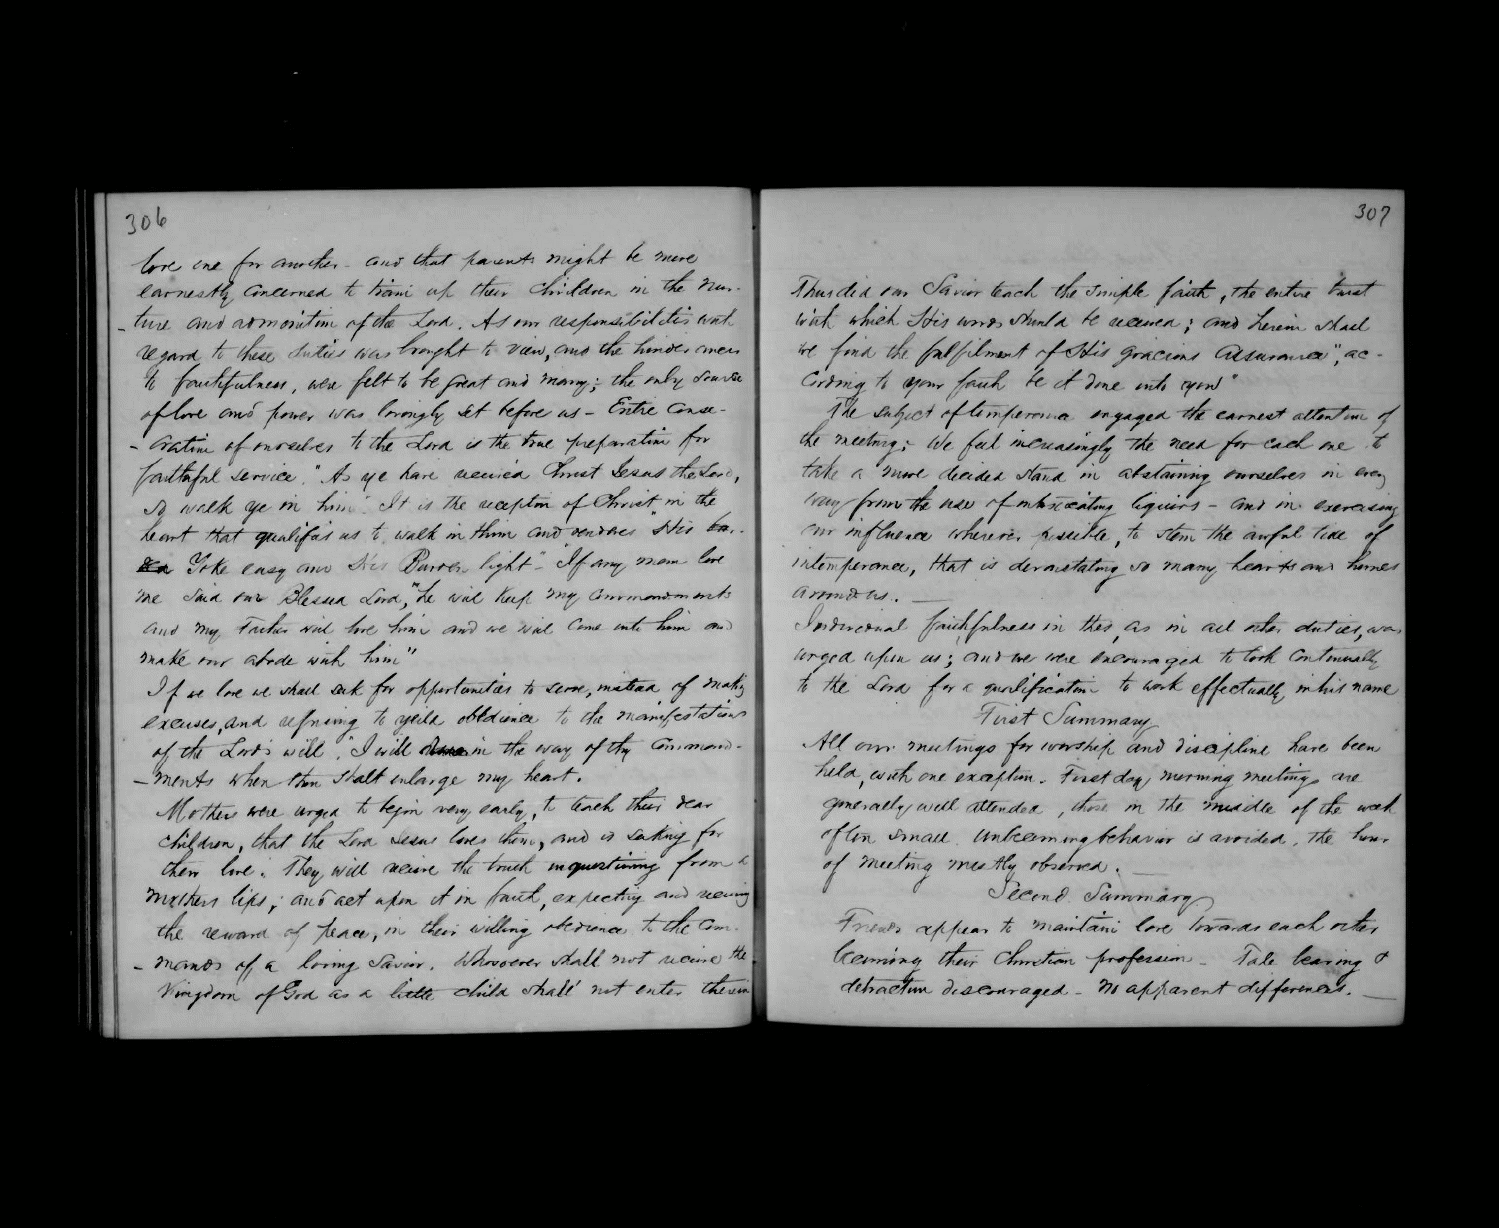 306
love one for another - and that parents might be more
earnestly concerned to train up their children in the nur-
- ture and admonition of the Lord. As our responsibilities with
regard to these duties was brought to view, and the hinderances
to faithfulness, were felt to be great and many; the only source
of love and power was lovingly set before us - Entire Conse-
- cration of ourselves to the Lord is the true preparation for
faithful service. "As ye have received Christ Jesus the Lord,
so walk ye in him" It is the reception of Christ in the
heart that qualifies us to walk in Him and renders "His
Yoke easy and His Burden light" - "If any man love
me said our Blessed Lord," he will keep my commandments
and my Father will love him and we will come unto him and
make our abode with him"
If we love we shall seek for opportunities to serve, instead of making
excuses, and refusing to yeild obedience to the manifestations
of the Lord's will. "I will in the way of thy Command-
- ments when thou shalt enlarge my heart.
Mothers were urged to begin very early, to teach their dear
children, that the Lord Jesus loves them, and is seeking for
their love. They will receive the truth unquestioning from a
mothers lips; and act upon it in faith, expecting and receiving
the reward of peace, in their willing obedience to the Com-
- mands of a loving Savior. Whosoever shall not receive the
Kingdom of God as a little child shall not enter therein
307
Thus did our Savior teach the simple faith, the entire trust
with which His words should be received; and herein shall
we find the fulfilment of His gracious assurance", ac-
cording to your faith be it done unto you"
The subject of temperance engaged the earnest attention of
the meeting; We feel increasingly the need for each one to
take a more decided stand in abstaining ourselves in every
way from the use of intoxicating liquors - and in exercising
our influence wherever possible, to stem the awful tide of
intemperance, that is devastating so many hearts and homes
around us. -
Individual faithfulness in this, as in all other duties, was
urged upon us; and we were encouraged to look continually
to the Lord for a qualification to work effectually in his name
First Summary
All our meetings for worship and discipline have been
held, with one exception. First day morning meetings are
generally well attended, those in the middle of the week
often small. Unbecoming behavior is avoided. The hour
of meeting mostly observed. -
Second Summary
Friends appear to maintain love towards each other
becoming their Christian profession - Tale bearing &
detraction discouraged - No apparent differences. -